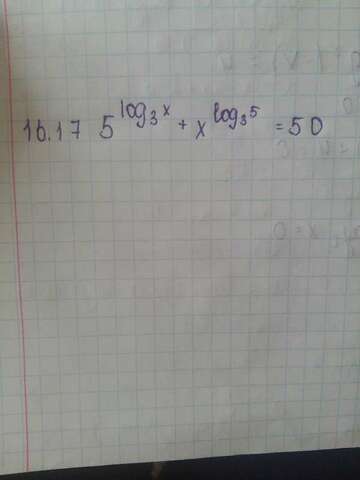 16.17 5^{log_3 x} + x^{log_3 5} = 50